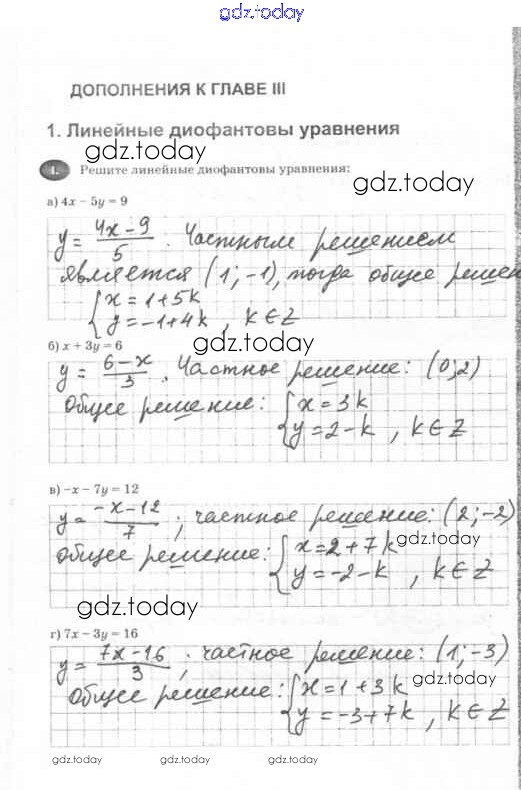 gdz.today
ДОПОЛНЕНИЯ К ГЛАВЕ III
1. Линейные диофантовы уравнения
gdz.today
1. Решите линейные диофантовы уравнения:
gdz.today
а) 4x – 5y = 9
y = 4x-9/5. Частным решением
является (1; -1), тогда общее решен
{x = 1+5k
{y = -1+4k, k∈Z
gdz.today
б) x + 3y = 6
y = 6-x/3. Частное решение: (0;2)
Общее решение: {x = 3k
{y = 2-k, k∈Z
в) –x – 7y = 12
y = -x-12/7; частное решение: (2;-2)
общее решение: {x = 2+7k
gdz.today
{y = -2-k, k∈Z
gdz.today
г) 7x – 3y = 16
y = 7x-16/3; частное решение: (1;-3)
общее решение: {x = 1+3k
gdz.today
{y = -3+7k, k∈Z
gdz.today gdz.today gdz.today